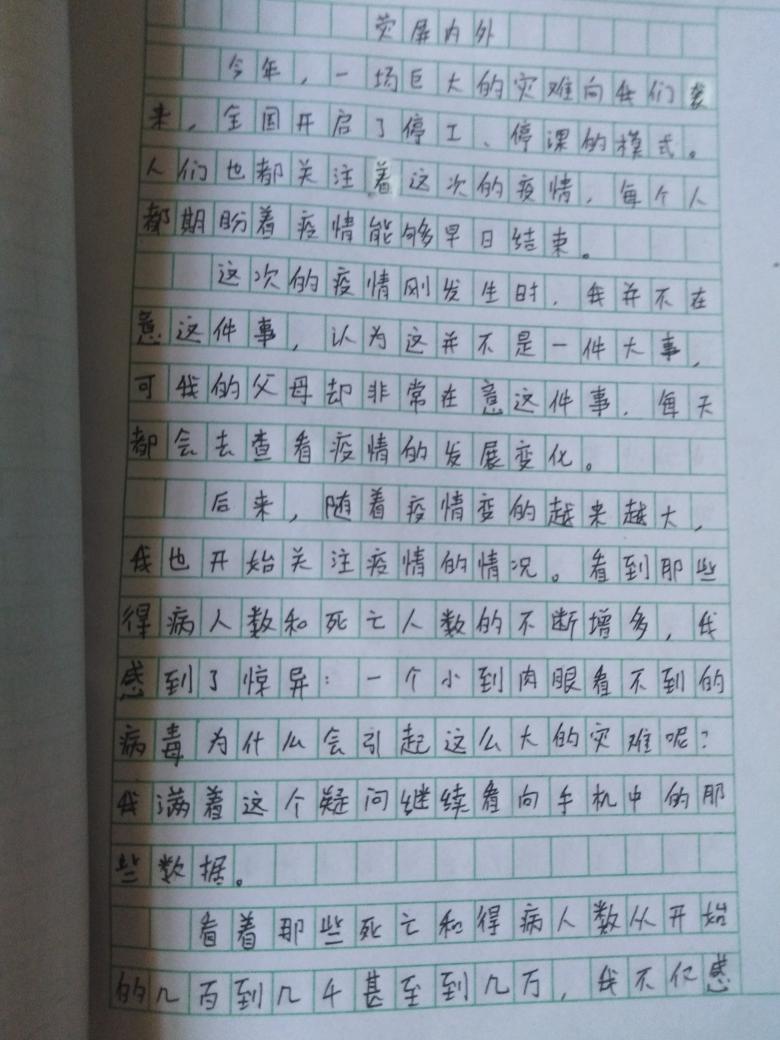 荧屏内外
今年，一场巨大的灾难向我们袭
来，全国开启了停工、停课的模式。
人们也都关注着这次的疫情，每个人
都期盼着疫情能够早日结束。
这次的疫情刚发生时，我并不在
意这件事，认为这并不是一件大事，
可我的父母却非常在意这件事，每天
都会去查看疫情的发展变化。
后来，随着疫情变的越来越大，
我也开始关注疫情的情况。看到那些
得病人数和死亡人数的不断增多，我
感到了惊异：一个小到肉眼看不到的
病毒为什么会引起这么大的灾难呢？
我满着这个疑问继续看向手机中的那
些数据。
看着那些死亡和得病人数从开始
的几百到几千甚至到几万，我不仅感